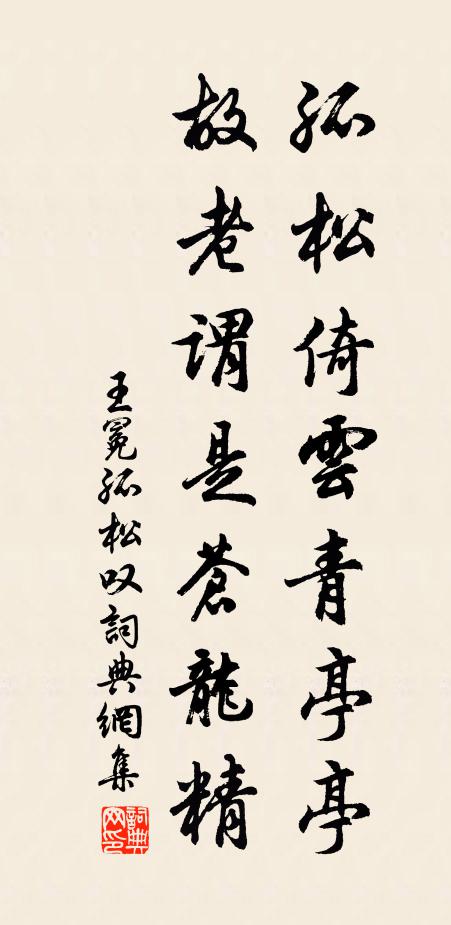 孤松倚雲青亭亭
故老謂是蒼龍精
王冕孤松叹詞典網集
詞典網印